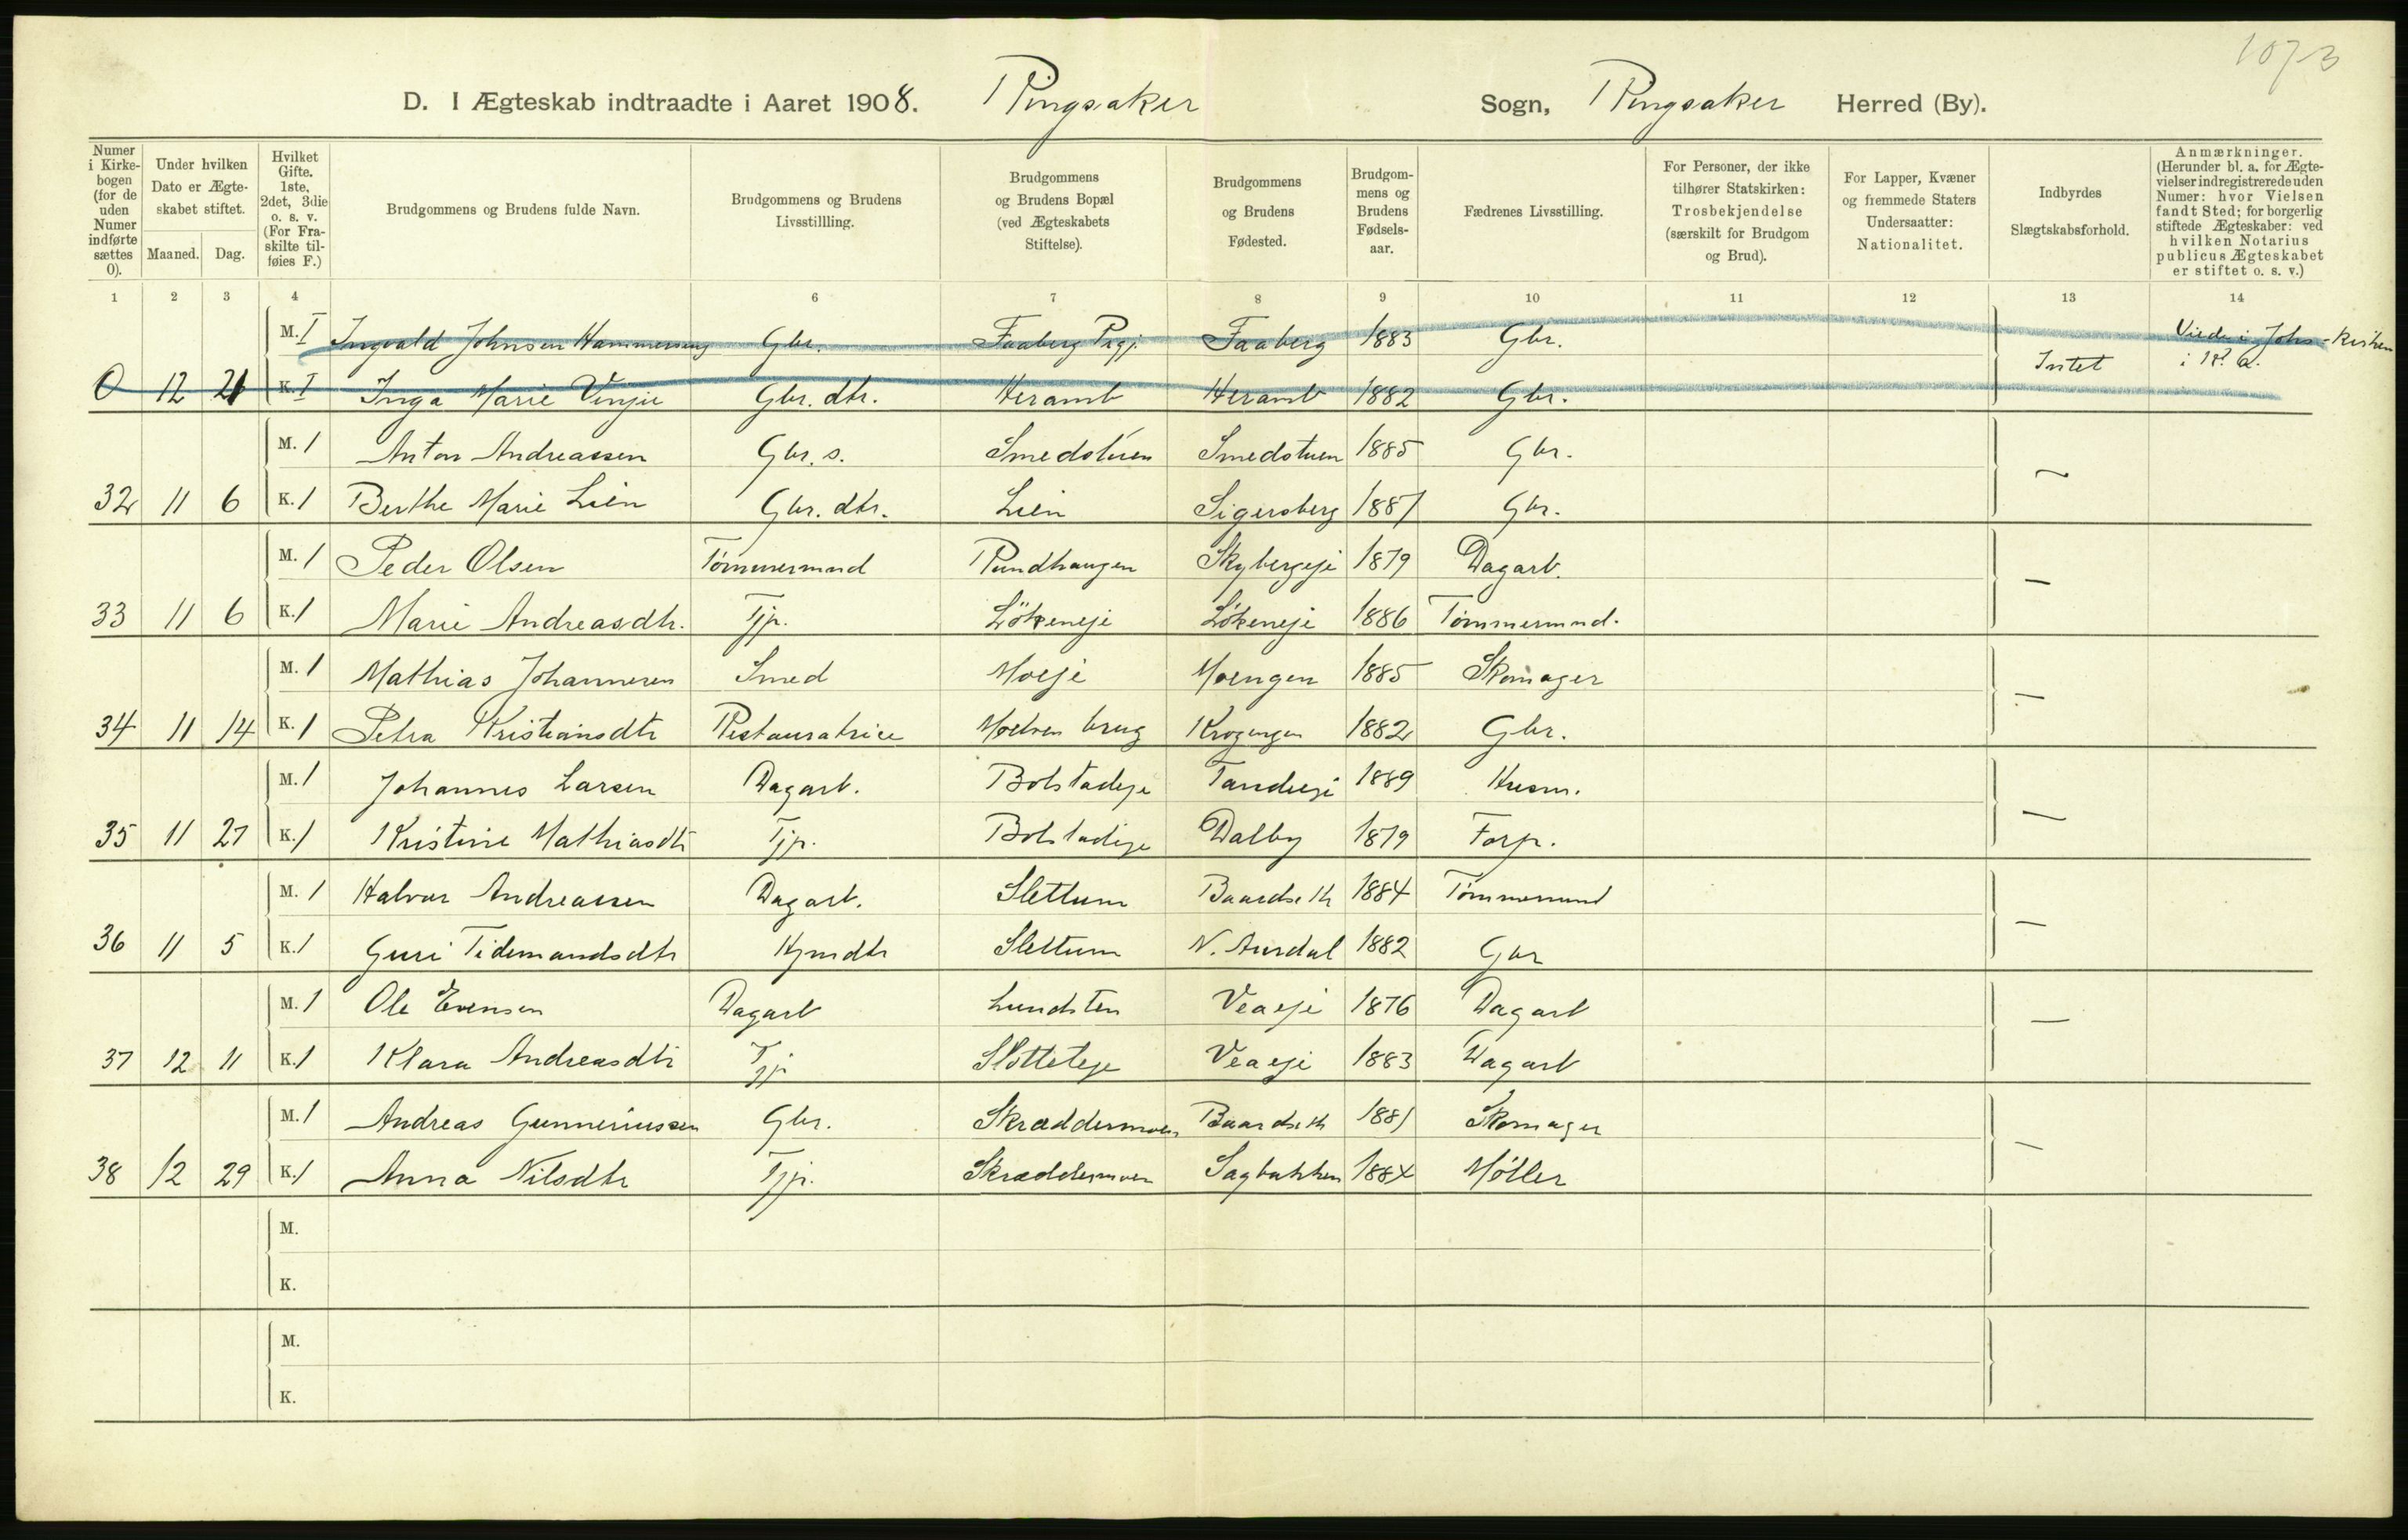 1073
D. I Ægteskab indtraadte i Aaret 1908. Ringsaker Sogn, Ringsaker Herred (By).
Numer i Kirkebogen (for de uden Numer indførte sættes 0).
Under hvilken Dato er Ægteskabet stiftet. Maaned. Dag.
Hvilket Gifte. 1ste, 2det, 3die o. s. v. (For Fraskilte tilføies F.)
Brudgommens og Brudens fulde Navn.
Brudgommens og Brudens Livsstillling.
Brudgommens og Brudens Bopæl (ved Ægteskabets Stiftelse).
Brudgommens og Brudens Fødested.
Brudgommens og Brudens Fødselsaar.
Fædrenes Livsstilling.
For Personer, der ikke tilhører Statskirken: Trosbekjendelse (særskilt for Brudgom og Brud).
For Lapper, Kvæner og fremmede Staters Undersaatter: Nationalitet.
Indbyrdes Slægtskabsforhold.
Anmærkninger. (Herunder bl. a. for Ægtevielser indregistrerede uden Numer: hvor Vielsen fandt Sted; for borgerlig stiftede Ægteskaber: ved hvilken Notarius publicus Ægteskabet er stiftet o. s. v.)
1 2 3 4 6 7 8 9 10 11 12 13 14
M. I Ingvald Johnsen Hammerseng Gbr. Faaberg Prgj. Faaberg 1883 Gbr. Viede i Johs-kirken
Intet i Kr. a.
0 12 21 K. I Inga Marie Vinju Gbr. dtr. Heramb Heramb 1882 Gbr.
M. 1 Anton Andreassen Gbr. s. Smedstuen Smedstuen 1885 Gbr.
32 11 6 K. 1 Berthe Marie Lien Gbr. dtr. Lien Sigersberg 1887 Gbr. ~
M. 1 Peder Olsen Tømmermand Rundhaugen Skybergeje 1879 Dagarb.
33 11 6 K. 1 Marie Andreasdtr. Tjp. Løkeneje Løkeneje 1886 Tømmermnd. —
M. 1 Mathias Johannesen Smed Moeje Moengen 1885 Skomager
34 11 14 K. 1 Petra Kristiansdtr Restauratrice Moelven brug Krogengen 1882 Gbr. —
M. 1 Johannes Larsen Dagarb. Bolstadeje Tandeeje 1889 Husm.
35 11 27 K. 1 Kristine Mathiasdtr Tjp. Bolstadeje Dalby 1879 Forp. —
M. 1 Halvor Andreassen Dagarb. Slettum Baardseth 1884 Tømmermand
36 11 5 K. 1 Guri Tidemandsdtr Slettum N. Aurdal 1882 Gbr —
M. 1 Ole Evensen Dagarb Lundsten Veaeje 1876 Dagarb
37 12 11 K. 1 Klara Andreasdtr Tjp Veaeje 1883 Dagarb —
M. 1 Andreas Gunneriussen Gbr. Skræddermoen Baardseth 1881 Skomager
38 12 29 K. 1 Anna Nilsdtr Tjp. Skræddermoen Sagbakken 1884 Møller —
M.
K.
M.
K.